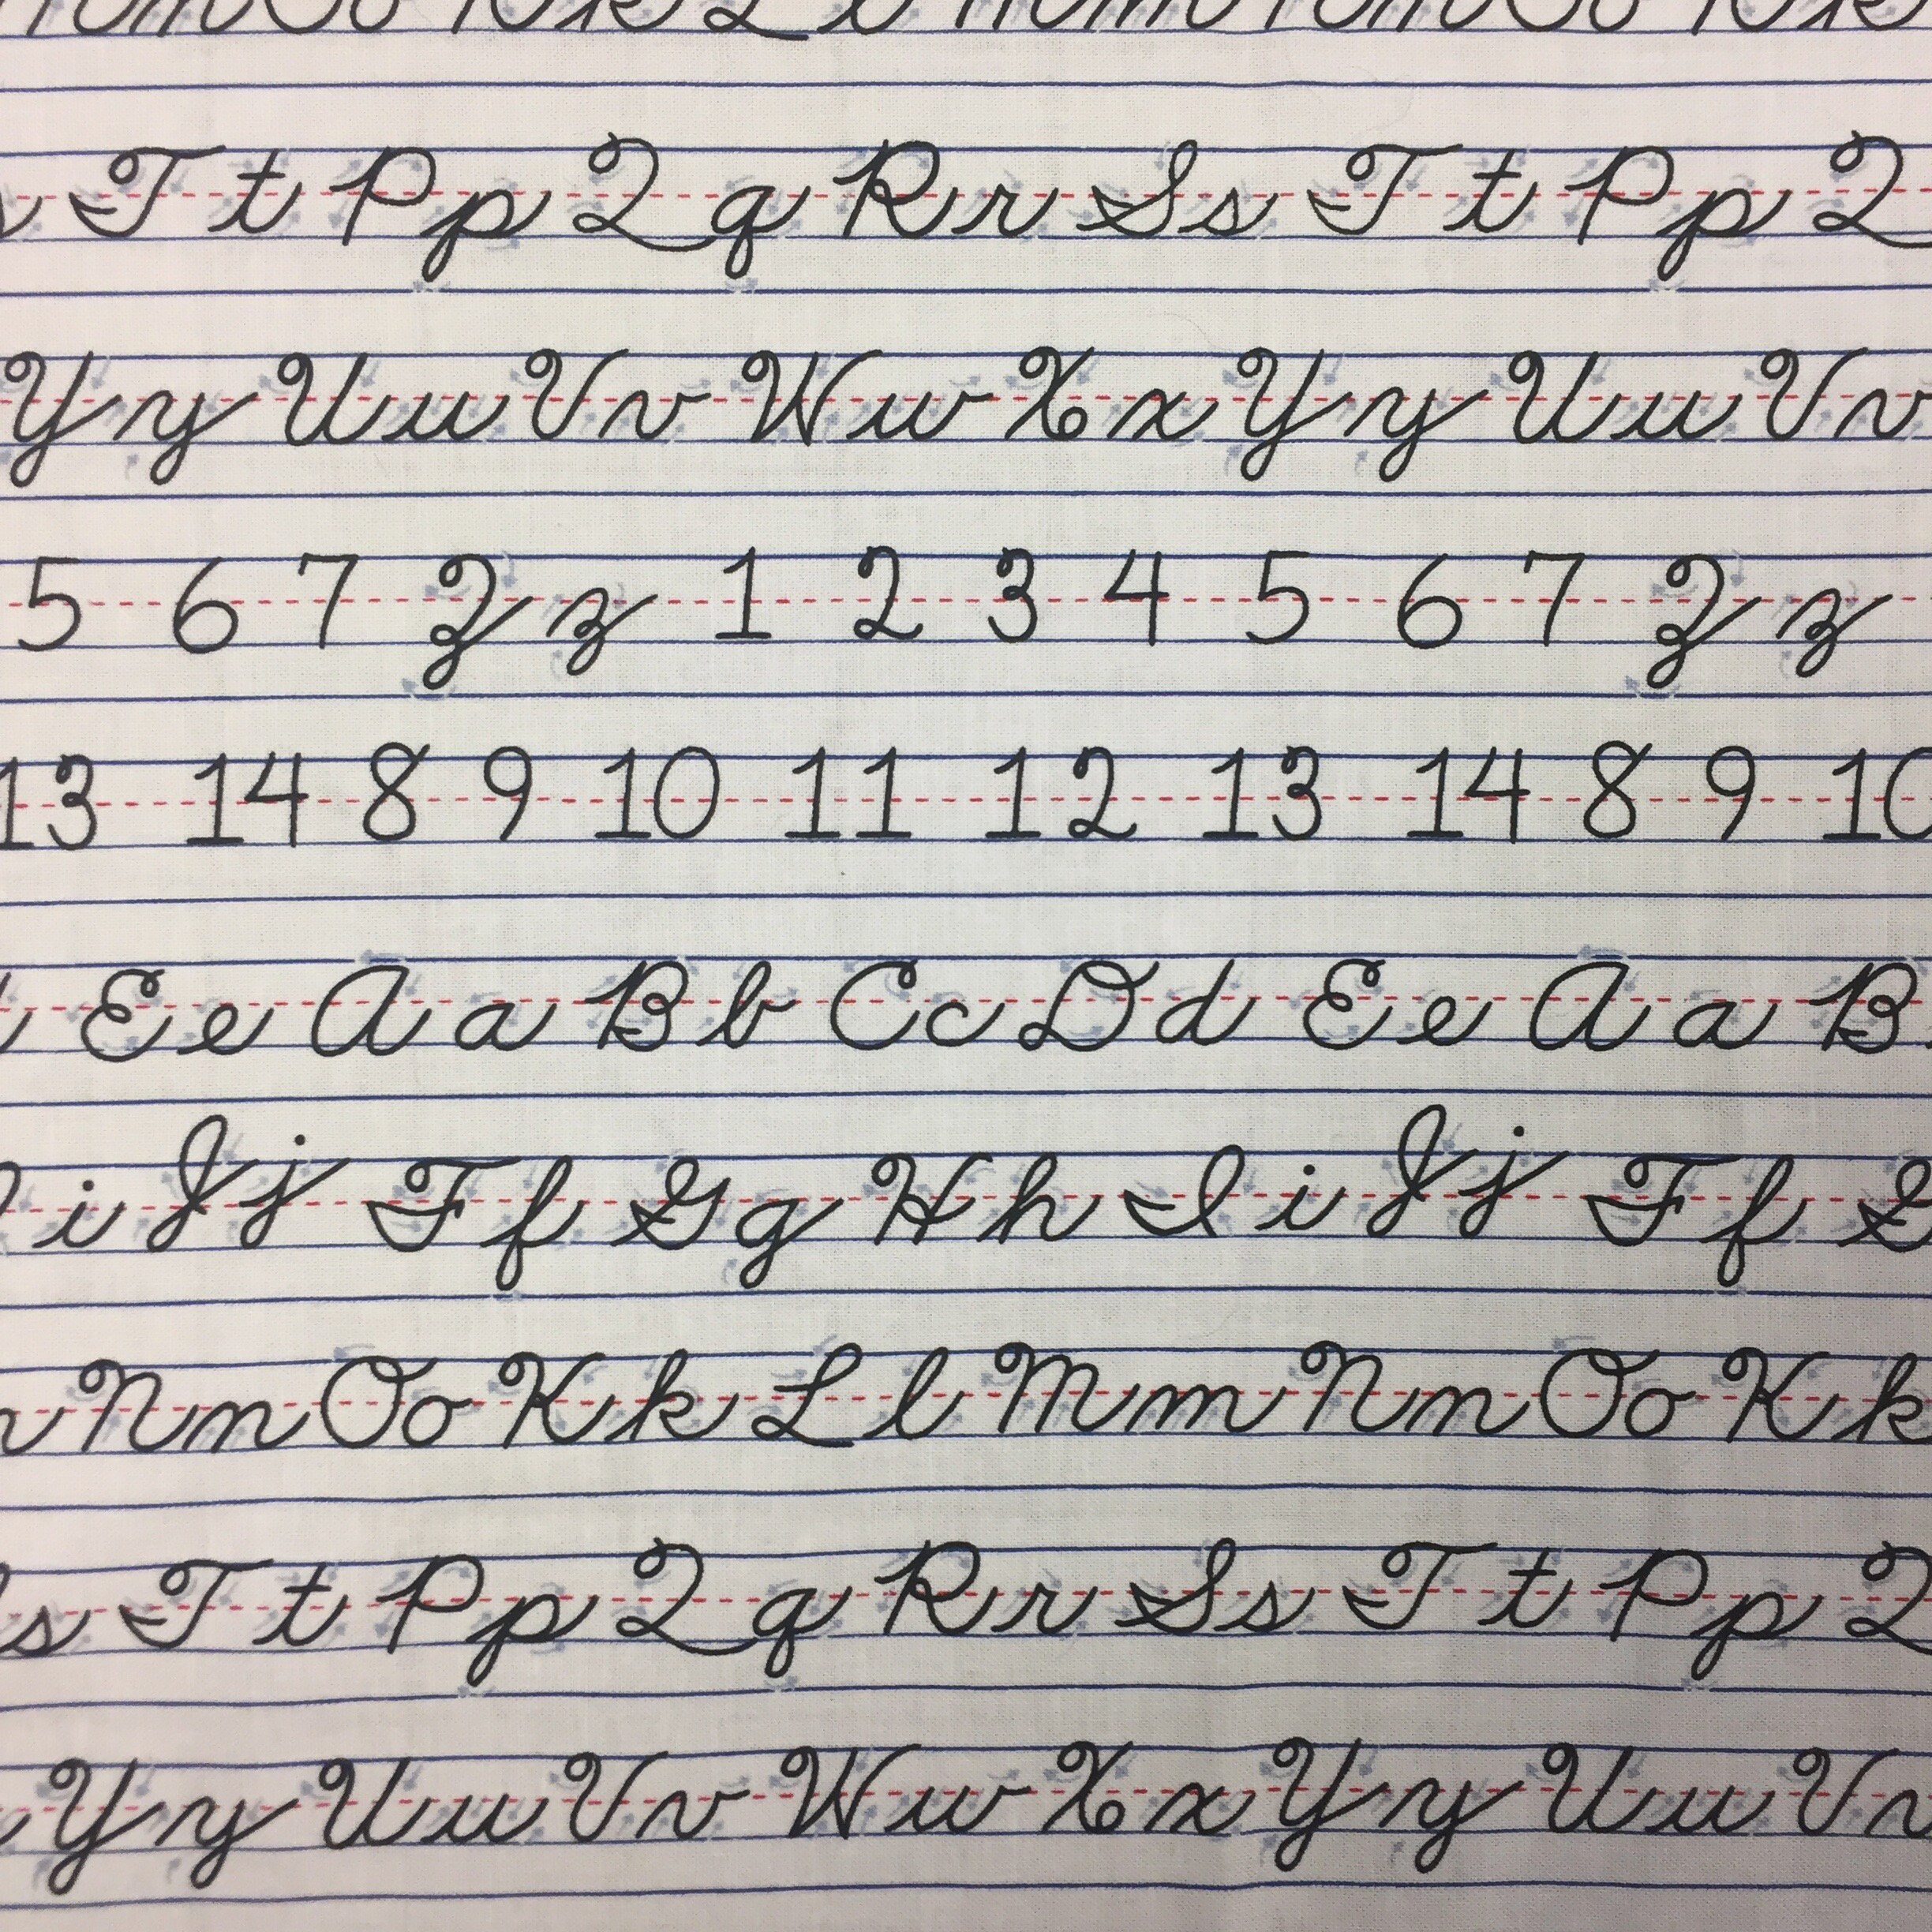 n Oo Kk Ll Mm Nn Oo Kk
s Tt Pp Qq Rr Ss Tt Pp Q
Yy Uu Vv Ww Xx Yy Uu Vv
5 6 7 Zz 1 2 3 4 5 6 7 Zz
13 14 8 9 10 11 12 13 14 8 9 10
d Ee Aa Bb Cc Dd Ee Aa B
I i Jj Ff Gg Hh Ii Jj Ff G
n Nn Oo Kk Ll Mm Nn Oo Kk
Ss Tt Pp Qq Rr Ss Tt Pp Q
Yy Uu Vv Ww Xx Yy Uu Vv